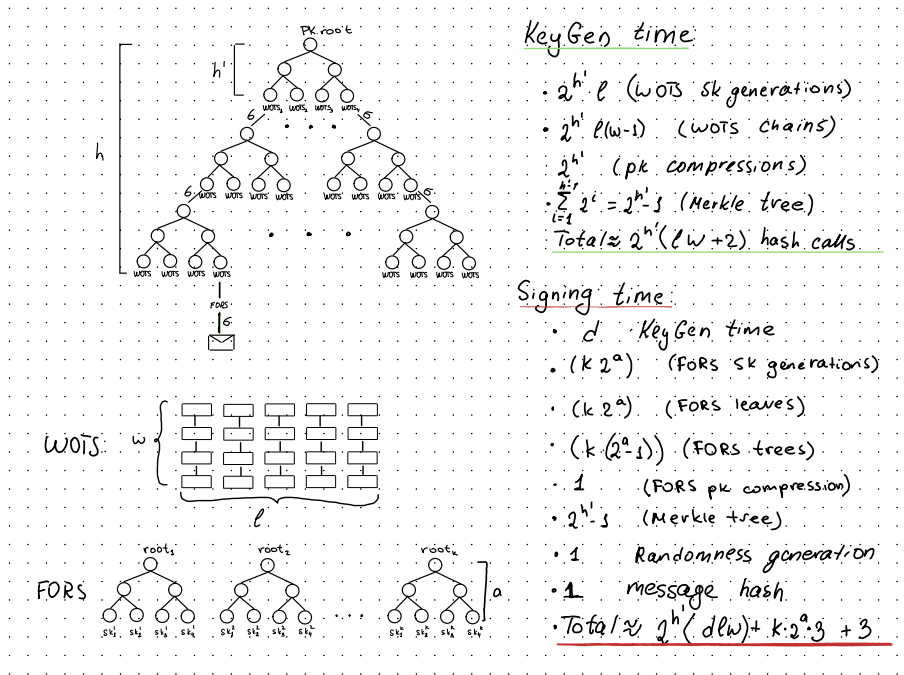 PK.root
h'
WOTS₁ WOTS₂ WOTS₃ WOTS₄
σ . . . σ
h
WOTS WOTS WOTS WOTS WOTS WOTS WOTS WOTS
σ σ
. . .
WOTS WOTS WOTS WOTS WOTS WOTS WOTS WOTS
FORS
σ
WOTS
w
l
FORS
root₁ root₂ rootₖ
a
. . .
sk₁¹ sk₂¹ sk₃¹ sk₄¹ sk₁² sk₂² sk₃² sk₄² sk₁ᵏ sk₂ᵏ sk₃ᵏ sk₄ᵏ
KeyGen time
• 2^h' l (WOTS sk generations)
• 2^h' l(w-1) (WOTS chains)
2^h' (pk compressions)
• Σ_{i=1}^{h'-1} 2^i = 2^h' - 1 (Merkle tree)
Total ≈ 2^h' (l w + 2) hash calls
Signing time
• d KeyGen time
• (k 2^a) (FORS sk generations)
• (k 2^a) (FORS leaves)
• (k (2^a - 1)) (FORS trees)
• 1 (FORS pk compression)
• 2^h' - 1 (Merkle tree)
• 1 Randomness generation
• 1 message hash
• Total ≈ 2^h' (d l w) + k·2^a·3 + 3